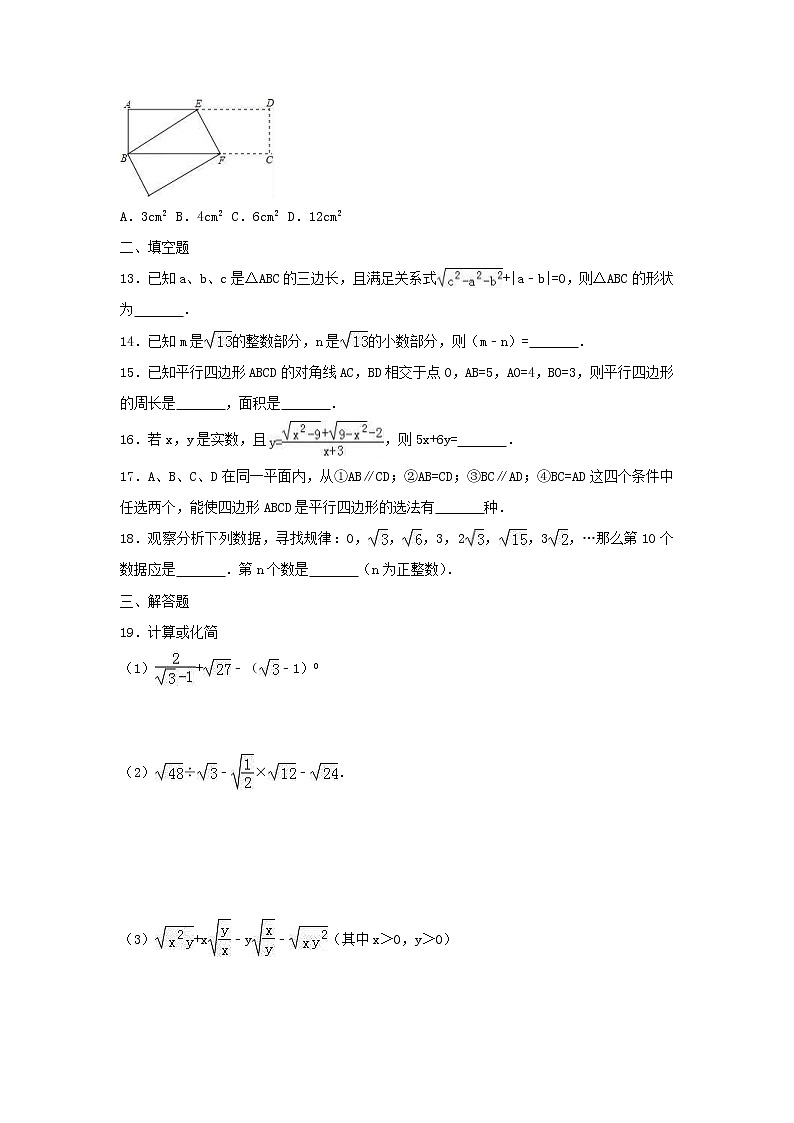 A E D
B F C
A．3cm² B．4cm² C．6cm² D．12cm²
二、填空题
13．已知a、b、c是△ABC的三边长，且满足关系式√(c²-a²-b²)+|a﹣b|=0，则△ABC的形状
为　　　．
14．已知m是√13的整数部分，n是√13的小数部分，则（m﹣n）=　　　．
15．已知平行四边形ABCD的对角线AC，BD相交于点O，AB=5，AO=4，BO=3，则平行四边形
的周长是　　　，面积是　　　．
16．若x，y是实数，且y=(√(x²-9)+√(9-x²)-2)/(x+3)，则5x+6y=　　　．
17．A、B、C、D在同一平面内，从①AB∥CD；②AB=CD；③BC∥AD；④BC=AD这四个条件中
任选两个，能使四边形ABCD是平行四边形的选法有　　　种．
18．观察分析下列数据，寻找规律：0，√3，√6，3，2√3，√15，3√2，…那么第10个
数据应是　　　．第n个数是　　　（n为正整数）．
三、解答题
19．计算或化简
（1）2/(√3-1)+√27﹣（√3﹣1）⁰
（2）√48÷√3﹣√(1/2)×√12﹣√24．
（3）√(x²y)+x√(y/x)﹣y√(x/y)﹣√(xy²)（其中x＞0，y＞0）